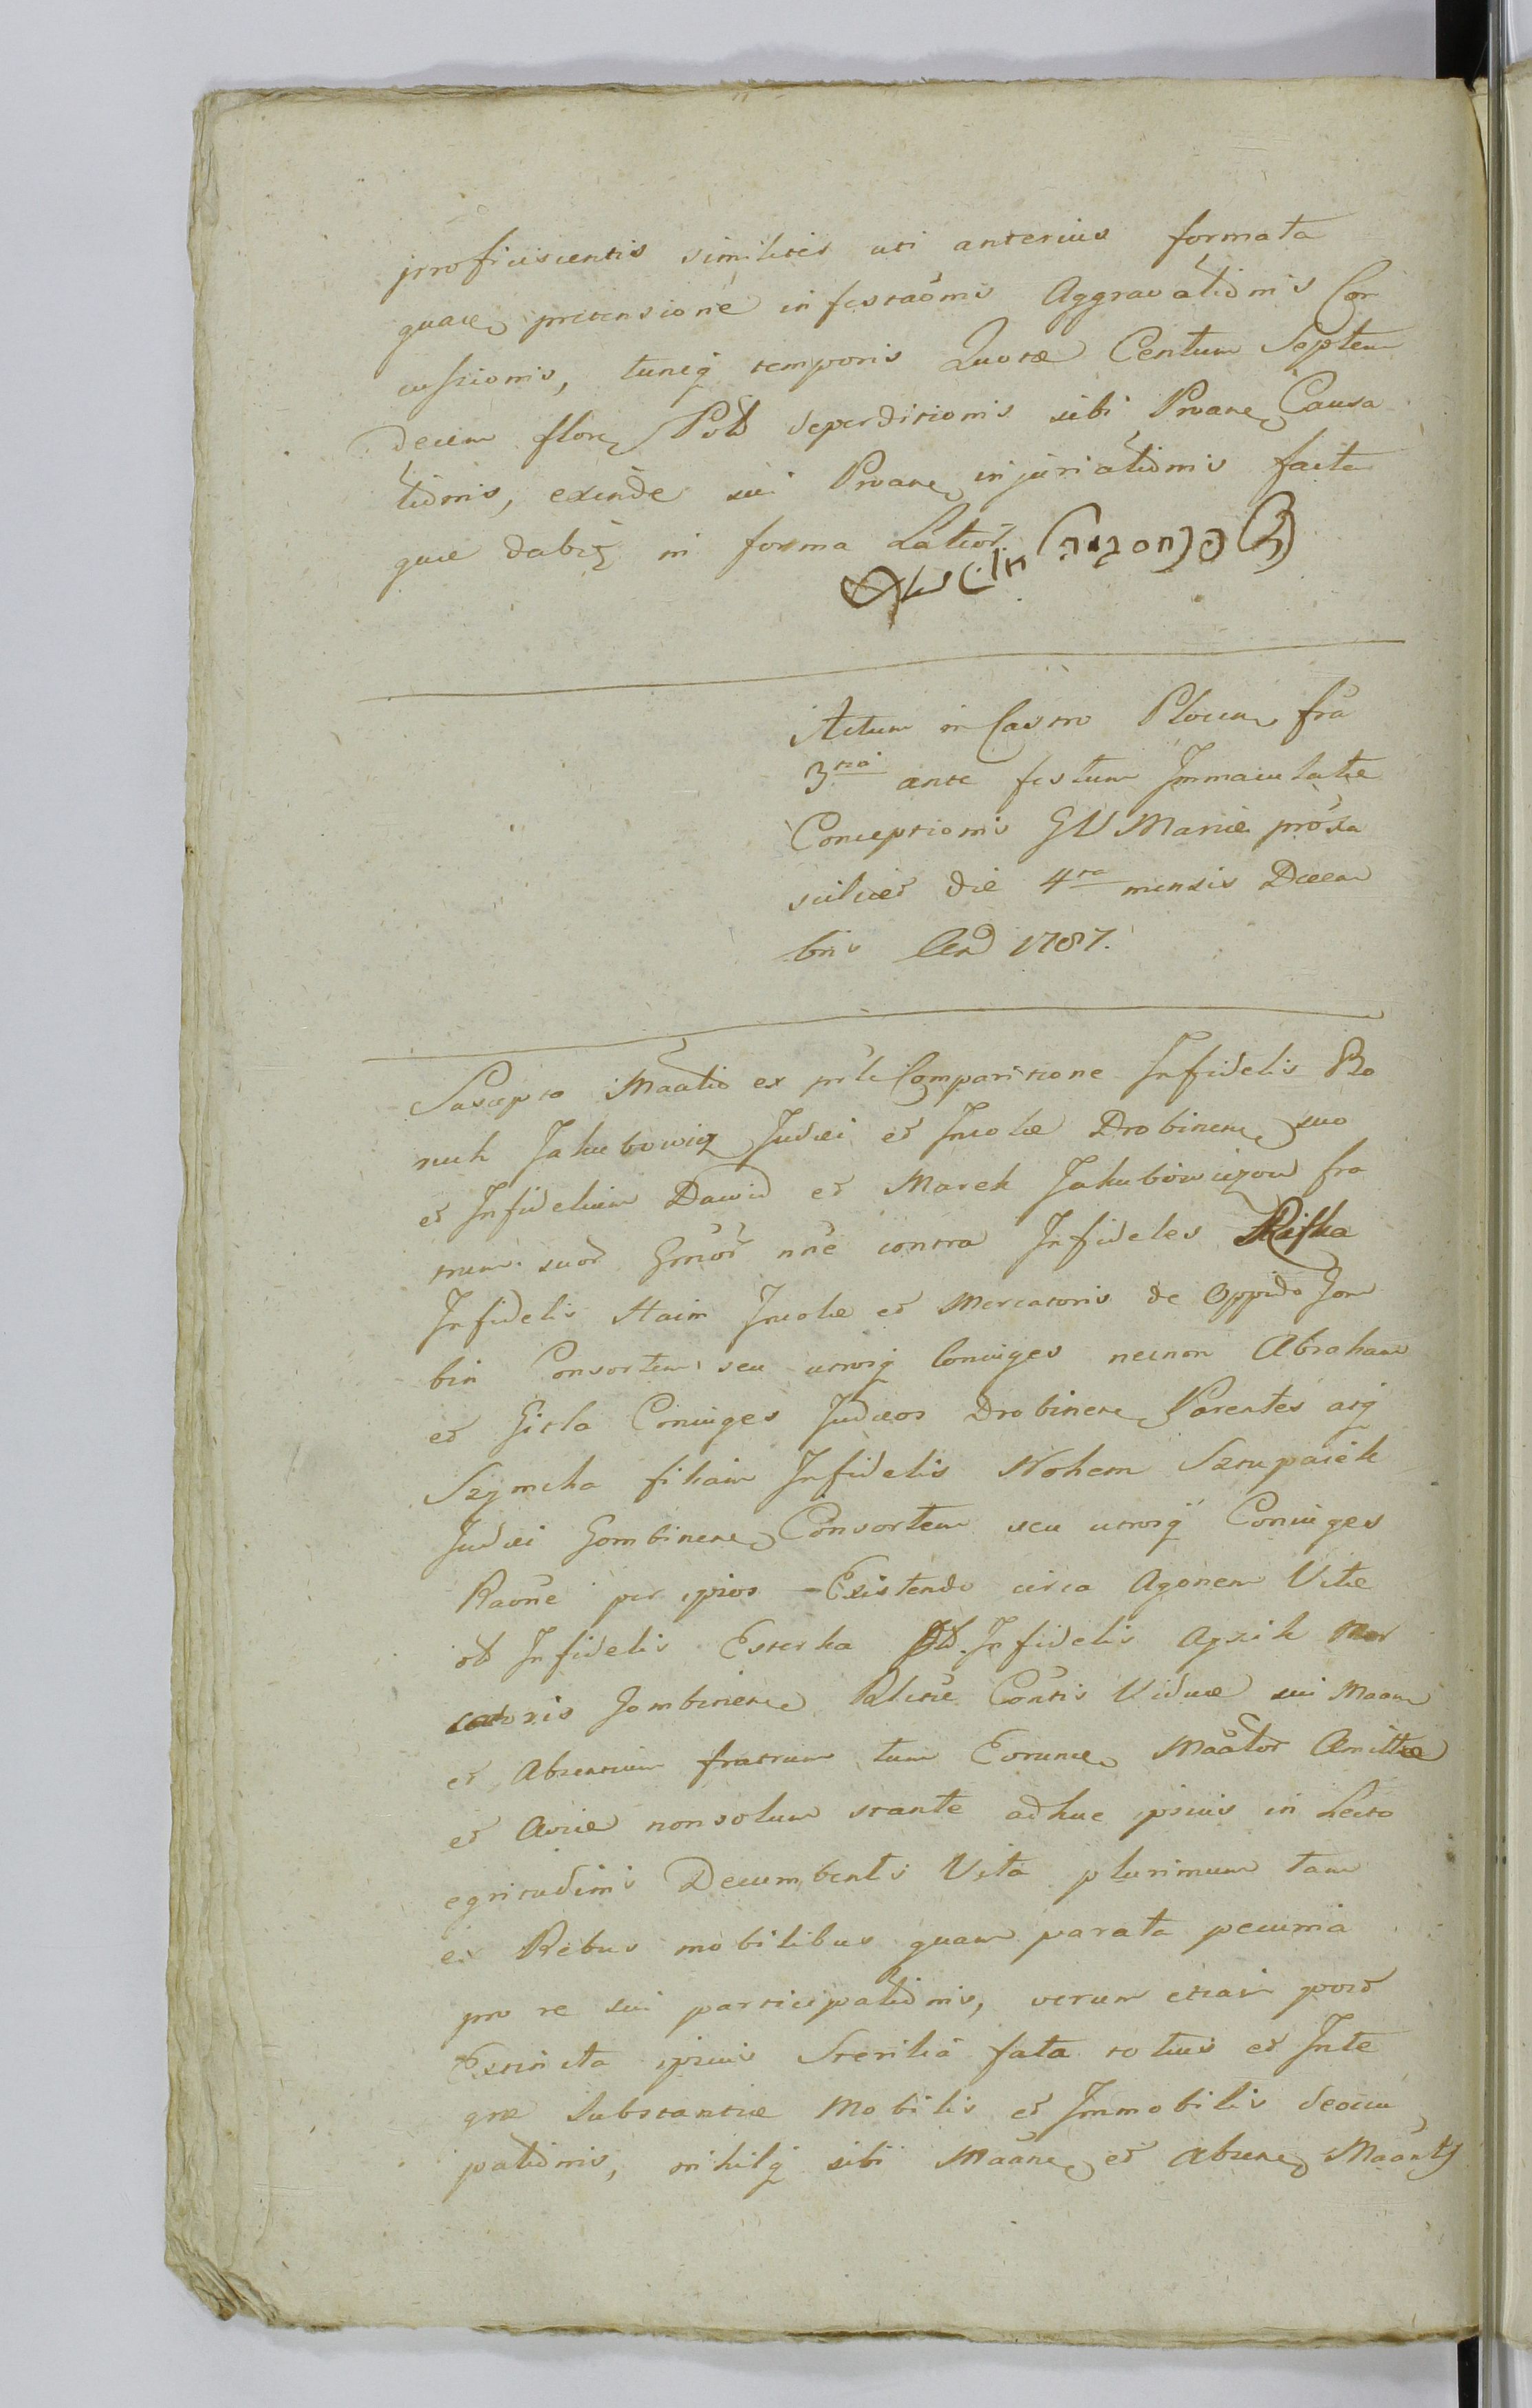 proficiscentis similiter uti anterius formata
quaeq pretensione infestaõnis Aggravatiõnis Con
cussionis, tuncq temporis Quotæ Centum Septem
decim floren Pol deperditionis sibi Proane Causa
tiõnis, exinde sui Proane injuriatiõnis facta
que dabit in forma Latior
Actum in Castro Plocen fra
3tia ante festum Immaculatæ
Conceptionis GV Mariæ proxa
scilicet die 4ta mensis Decem
bris And 1787.
Suscepto Maatio ex prli Comparitione Infidelis Bo
ruch Jakubowicz Judæi et Incolæ Drobinen suo
et Infidelium Dawid et Marek Jakubowiczow fra
trum suor Grnor nne contra Infideles Rifka
Infidelis Haim Incolæ et Mercatoris de Oppido Gom
bin Consortem seu utrosq Coniuges necnon Abraham
et Gitla Coniuges Judæos Drobinen Parentes atq
Szymcha filiam Infidelis Nohem Szrupaick
Judæi Gombinen Consortem seu utrosq Coniuges
Raone per ipsos Existendo circa Agonem Vitæ
ol Infidelis Esterka ol Infidelis Ayzik Mer
catoris Gombinen Relictæ Contis Viduæ sui Maan
et Absentium fratrum tum Eorunde Maator Amittæ
et Aviæ non solum stante adhuc ipsius in Lecto
egritudinis Decumbentis Vita plurimum tam
ex Rebus mobilibus quam parata pecunia
pro re sui participatiõnis, verum etiam post
Extincta ipsius Sterilia fata totius et Inte
græ Substantiæ Mobilis et Immobilis deoccu
patiõnis, nihilq sibi Maane et Absene Maants